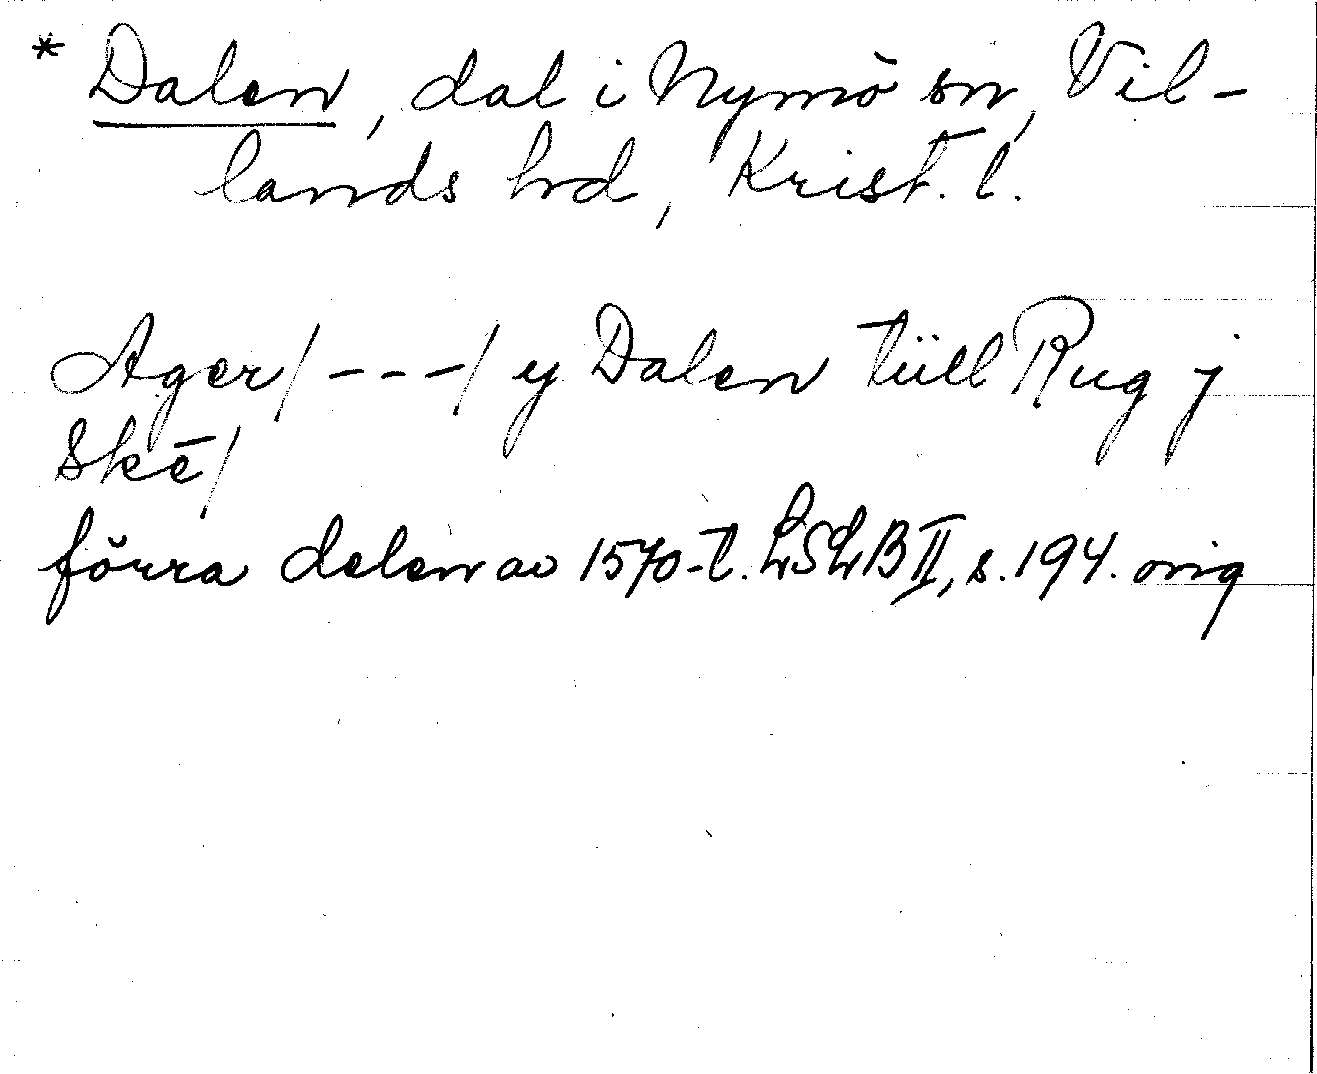 * Dalen, dal i Nymö sn, Vil-
lands hd, Krist. l.
Ager/ - - - / y Dalen tüll Rug j
Skē/
förra delen av 1570-t. LSLB II, s. 194. orig